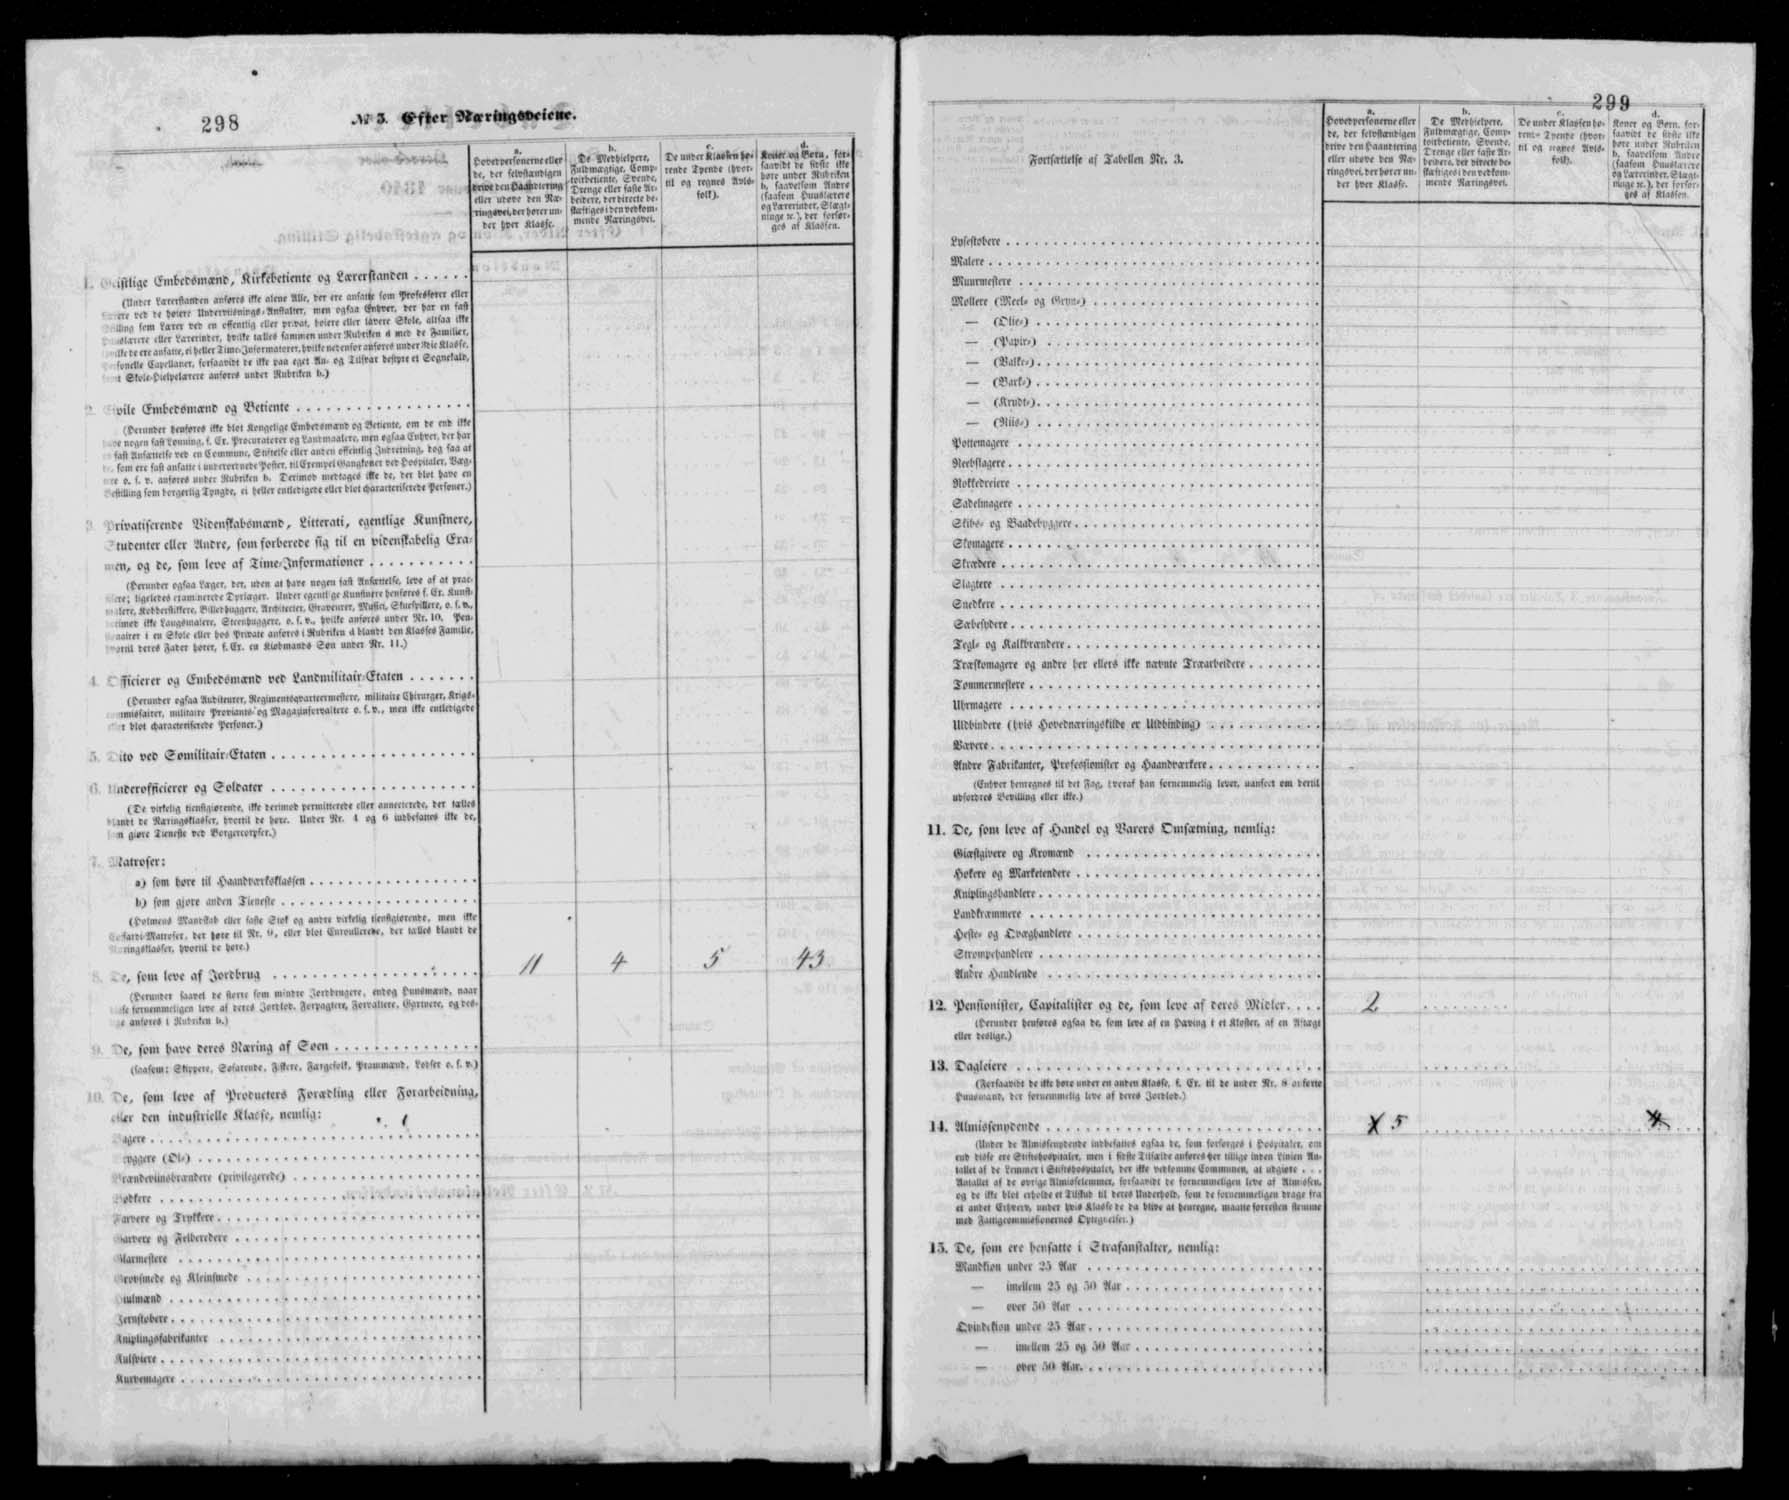 298
№ 3. Efter Næringsveiene.
a.
Hovedpersonerne eller
de, der selvstændigen
drive den Haandtering
eller udøve den Næ-
ringsvei, der hører un-
der hver Klasse.
b.
De Medhielpere,
Fuldmægtige, Comp-
toirbetiente, Svende,
Drenge eller faste Ar-
beidere, der directe be-
skæftiges i den vedkom-
mende Næringsvei.
c.
De under Klassen hø-
rende Tyende (hvor-
til og regnes Avls-
folk).
d.
Koner og Børn, for-
saavidt de sidste ikke
høre under Rubriken
b, saavelsom Andre
(saasom Huuslærere
og Lærerinder, Slægt-
ninge ꝛc.), der forsør-
ges af Klassen.
1. Geistlige Embedsmænd, Kirkebetiente og Lærerstanden
(Under Lærerstanden anføres ikke alene Alle, der ere ansatte som Professorer eller
Lærere ved de høiere Underviisnings-Anstalter, men ogsaa Enhver, der har en fast
Stilling som Lærer ved en offentlig eller privat, høiere eller lavere Skole, altsaa ikke
Huuslærere eller Lærerinder, hvilke tælles sammen under Rubriken d med de Familier,
hvorhos de ere ansatte, ei heller Time-Informatorer, hvilke nedenfor anføres under 3die Klasse.
Personelle Capellaner, forsaavidt de ikke paa eget An- og Tilsvar bestyre et Sognekald,
samt Skole-Hielpelærere anføres under Rubriken b.)
2. Civile Embedsmænd og Betiente
(Herunder henføres ikke blot Kongelige Embedsmænd og Betiente, om de end ikke
have nogen fast Lønning, f. Ex. Procuratorer og Landmaalere, men ogsaa Enhver, der har
en fast Ansættelse ved en Commune, Stiftelse eller anden offentlig Indretning, dog saa at
de, som ere fast ansatte i underordnede Poster, til Exempel Gangkoner ved Hospitaler, Væg-
tere o. s. v. anføres under Rubriken b. Derimod medtages ikke de, der blot have en
Bestilling som borgerlig Tyngde, ei heller entledigede eller blot characteriserede Personer.)
3. Privatiserende Videnskabsmænd, Litterati, egentlige Kunstnere,
Studenter eller Andre, som forberede sig til en videnskabelig Exa-
men, og de, som leve af Time-Informationer
(Herunder ogsaa Læger, der, uden at have nogen fast Ansættelse, leve af at prac-
tisere; ligeledes examinerede Dyrlæger. Under egentlige Kunstnere henføres f. Ex. Kunst-
malere, Kobberstikkere, Billedhuggere, Architecter, Graveurer, Musici, Skuespillere, o. s. v.,
derimod ikke Laugsmalere, Steenhuggere, o. s. v., hvilke anføres under Nr. 10. Pen-
sionairer i en Skole eller hos Private anføres i Rubriken d blandt den Klasses Familie,
hvortil deres Fader hører, f. Ex. en Kiøbmands Søn under Nr. 11.)
4. Officierer og Embedsmænd ved Landmilitair-Etaten
(Herunder ogsaa Auditeurer, Regimentsqvarteermestere, militaire Chirurger, Krigs-
commissairer, militaire Proviants- og Magazinforvaltere o. s. v., men ikke entledigede
eller blot characteriserede Personer.)
5. Dito ved Sømilitair-Etaten
6. Underofficierer og Soldater
(De virkelig tienstgiørende, ikke derimod permitterede eller annecterede, der tælles
blandt de Næringsklasser, hvortil de høre. Under Nr. 4 og 6 indbefattes ikke de,
som giøre Tieneste ved Borgercorpser.)
7. Matroser:
a) som høre til Haandværksklassen
b) som gjøre anden Tieneste
(Holmens Mandskab eller faste Stok og andre virkelig tienstgiørende, men ikke
Coffardi-Matroser, der høre til Nr. 9, eller blot Enroullerede, der tælles blandt de
Næringsklasser, hvortil de høre.)
8. De, som leve af Jordbrug 11 4 5 43
(Herunder saavel de større som mindre Jordbrugere, endog Huusmænd, naar
disse fornemmeligen leve af deres Jordlod. Forpagtere, Forvaltere, Gartnere, og des-
lige anføres i Rubriken b.)
9. De, som have deres Næring af Søen
(saasom: Skippere, Søfarende, Fiskere, Færgefolk, Prammænd, Lodser o. s. v.)
10. De, som leve af Producters Forædling eller Forarbeidning,
eller den industrielle Klasse, nemlig:
Bagere
Bryggere (Øl-)
Brændeviinsbrændere (privilegerede)
Bødkere
Farvere og Trykkere
Garvere og Felberedere
Glarmestere
Grovsmede og Kleinsmede
Hiulmænd
Jernstøbere
Kniplingsfabrikanter
Kulsviere
Kurvemagere
299
Fortsættelse af Tabellen Nr. 3.
a.
Hovedpersonerne eller
de, der selvstændigen
drive den Haandtering
eller udøve den Næ-
ringsvei, der hører un-
der hver Klasse.
b.
De Medhielpere,
Fuldmægtige, Comp-
toirbetiente, Svende,
Drenge eller faste Ar-
beidere, der directe be-
skæftiges i den vedkom-
mende Næringsvei.
c.
De under Klassen hø-
rende Tyende (hvor-
til og regnes Avls-
folk).
d.
Koner og Børn, for-
saavidt de sidste ikke
høre under Rubriken
b, saavelsom Andre
(saasom Huuslærere
og Lærerinder, Slægt-
ninge ꝛc.), der forsør-
ges af Klassen.
Lysestøbere
Malere
Muurmestere
Møllere (Meel- og Gryn-)
— (Olie-)
— (Papir-)
— (Valke-)
— (Bark-)
— (Krudt-)
— (Riis-)
Pottemagere
Reebslagere
Rokkedreiere
Sadelmagere
Skibs- og Baadebyggere
Skomagere
Skrædere
Slagtere
Snedkere
Sæbesydere
Tegl- og Kalkbrændere
Træskomagere og andre her ellers ikke nævnte Træarbeidere
Tømmermestere
Uhrmagere
Uldbindere (hvis Hovednæringskilde er Uldbinding)
Vævere
Andre Fabrikanter, Professionister og Haandværkere
(Enhver henregnes til det Fag, hvoraf han fornemmelig lever, uanseet om dertil
udfordres Bevilling eller ikke.)
11. De, som leve af Handel og Varers Omsætning, nemlig:
Giæstgivere og Kromænd
Høkere og Marketendere
Kniplingshandlere
Landkræmmere
Heste- og Qvæghandlere
Strømpehandlere
Andre Handlende
12. Pensionister, Capitalister og de, som leve af deres Midler 2
(Herunder henføres ogsaa de, som leve af en Hæving i et Kloster, af en Aftægt
eller deslige.)
13. Dagleiere
(Forsaavidt de ikke høre under en anden Klasse, f. Ex. til de under Nr. 8 anførte
Huusmænd, der fornemmelig leve af deres Jordlod.)
14. Almissenydende 5
(Under de Almissenydende indbefattes ogsaa de, som forsørges i Hospitaler, om
end disse ere Stiftshospitaler, men i sidste Tilfælde anføres her tillige inden Linien An-
tallet af de Lemmer i Stiftshospitalet, der ikke vedkomme Communen, at udgiøre . . .
Antallet af de øvrige Almisselemmer, forsaavidt de fornemmeligen leve af Almissen,
og de ikke blot erholde et Tilskud til deres Underhold, som de fornemmeligen drage fra
et andet Erhverv, under hvis Klasse de da blive at henregne, maatte forresten stemme
med Fattigcommissionernes Optegnelser.)
15. De, som ere hensatte i Strafanstalter, nemlig:
Mandkiøn under 25 Aar
— imellem 25 og 50 Aar
— over 50 Aar
Qvindekiøn under 25 Aar
— imellem 25 og 50 Aar
— over 50 Aar